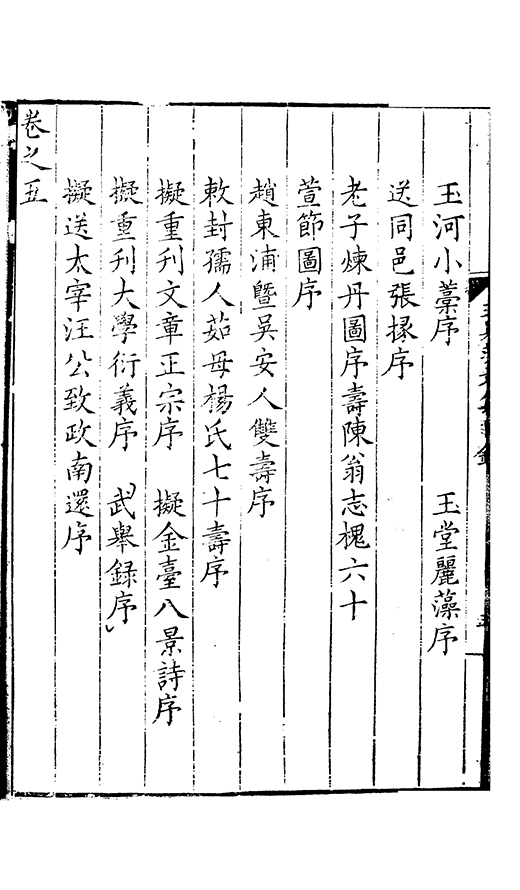 玉河小藁序　玉堂麗藻序
送同邑張掾序
老子煉丹圖序壽陳翁志槐六十
萱節圖序
趙東浦曁吳安人雙壽序
敕封孺人茹母楊氏七十壽序
擬重刊文章正宗序　擬金臺八景詩序
擬重刊大學衍義序　武舉録序
擬送太宰汪公致政南還序
卷之五